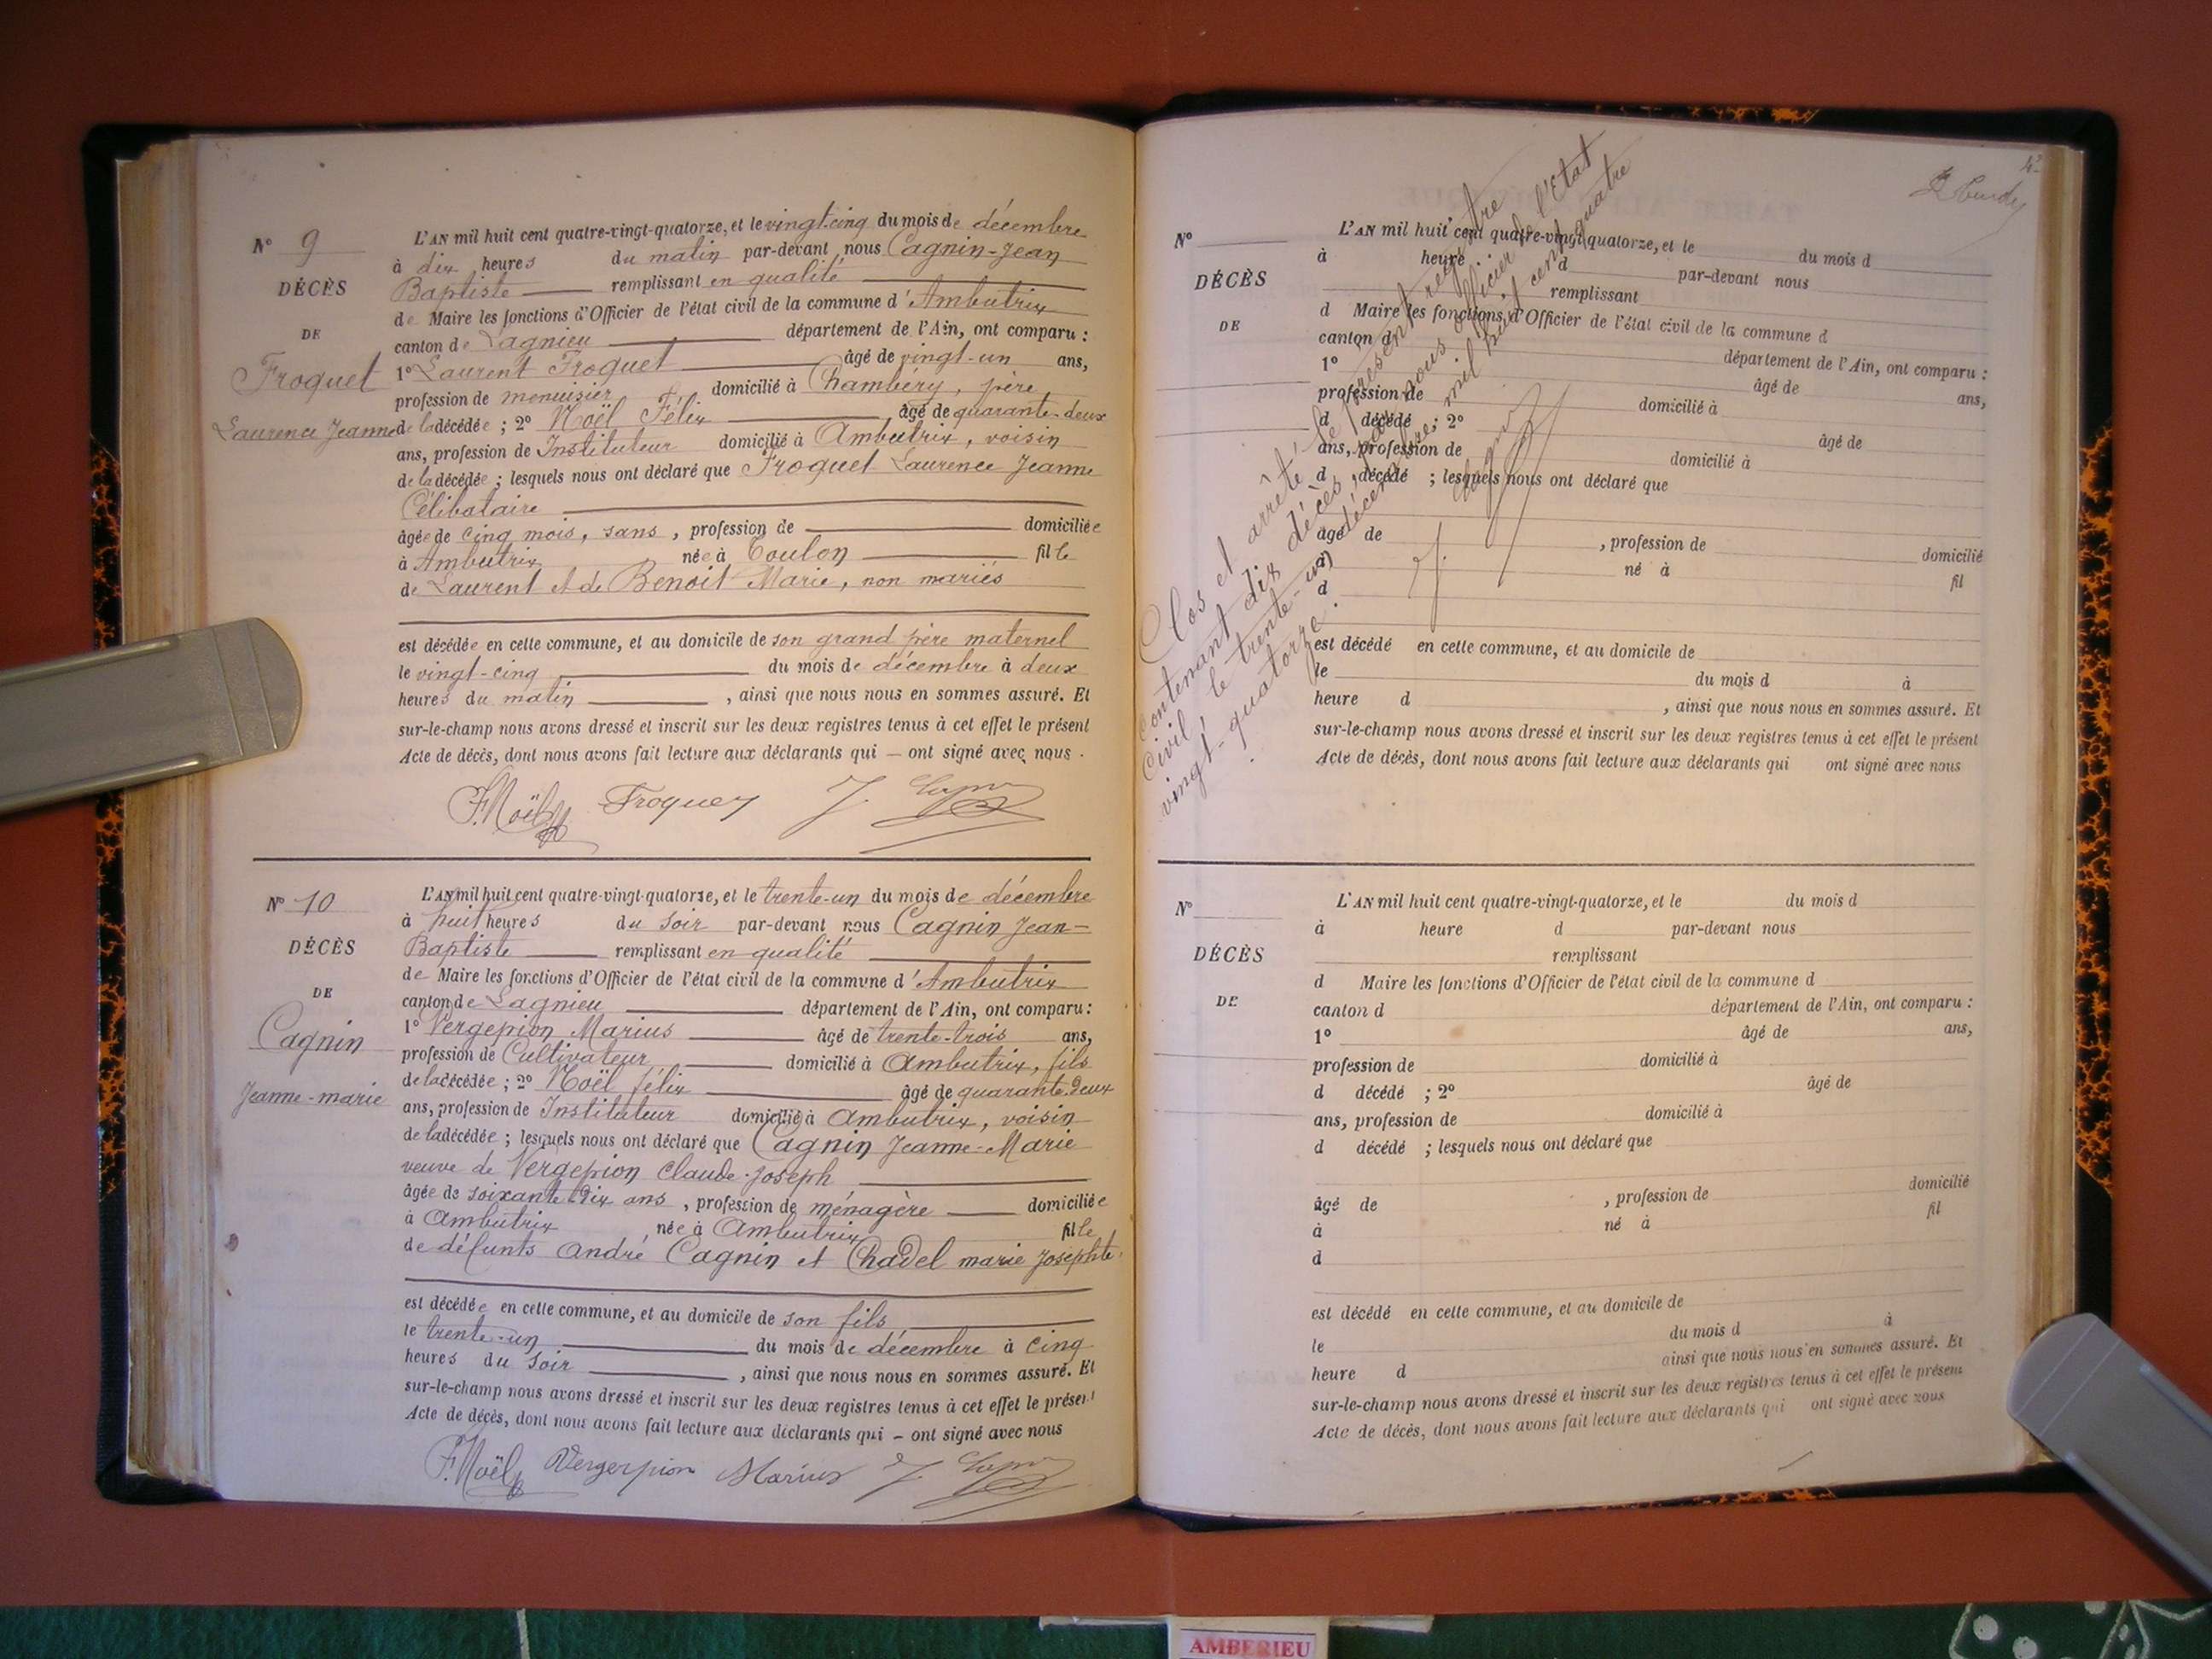 N° 9
DÉCÈS
DE
Froquet
Laurence Jeanne
L'AN mil huit cent quatre-vingt-quatorze, et le vingt-cinq du mois de décembre
à dix heures du matin par-devant nous Cagnin-Jean
Baptiste remplissant en qualité
de Maire les fonctions d'Officier de l'état civil de la commune d'Ambutrix
canton de Lagnieu département de l'Ain, ont comparu :
1° Laurent Froquet âgé de vingt-un ans,
profession de menuisier domicilié à Chambéry, père
de la décédée ; 2° Noël Félix âgé de quarante-deux
ans, profession de Instituteur domicilié à Ambutrix, voisin
de la décédée ; lesquels nous ont déclaré que Froquet Laurence Jeanne
Célibataire
âgée de cinq mois, sans, profession de domiciliée
à Ambutrix née à Toulon fille
de Laurent et de Benoit Marie, non mariés
est décédée en cette commune, et au domicile de son grand père maternel
le vingt-cinq du mois de décembre à deux
heures du matin, ainsi que nous nous en sommes assuré. Et
sur-le-champ nous avons dressé et inscrit sur les deux registres tenus à cet effet le présent
Acte de décès, dont nous avons fait lecture aux déclarants qui — ont signé avec nous.
F. Noël Froquet J.
N° 10
DÉCÈS
DE
Cagnin
Jeanne-marie
L'AN mil huit cent quatre-vingt-quatorze, et le trente-un du mois de décembre
à huit heures du soir par-devant nous Cagnin Jean-
Baptiste remplissant en qualité
de Maire les fonctions d'Officier de l'état civil de la commune d'Ambutrix
canton de Lagnieu département de l'Ain, ont comparu :
1° Vergepion Marius âgé de trente-trois ans,
profession de Cultivateur domicilié à Ambutrix, fils
de la décédée ; 2° Noël félix âgé de quarante-deux
ans, profession de Instituteur domicilié à Ambutrix, voisin
de la décédée ; lesquels nous ont déclaré que Cagnin Jeanne-Marie
veuve de Vergepion Claude-Joseph
âgée de soixante-dix ans, profession de ménagère domiciliée
à Ambutrix née à Ambutrix fille
de défunts André Cagnin et Chadel marie Josephte
est décédée en cette commune, et au domicile de son fils
le trente-un du mois de décembre à cinq
heures du soir, ainsi que nous nous en sommes assuré. Et
sur-le-champ nous avons dressé et inscrit sur les deux registres tenus à cet effet le présent
Acte de décès, dont nous avons fait lecture aux déclarants qui – ont signé avec nous
F. Noël Vergerpion Marius J.
Clos et arrêté le présent registre
contenant dix décès, par nous officier de l'Etat
Civil le trente-un décembre, mil huit cent quatre
vingt-quatorze.
N°
DÉCÈS
DE
L'AN mil huit cent quatre-vingt-quatorze, et le du mois d
à heure d par-devant nous
remplissant
d Maire les fonctions d'Officier de l'état civil de la commune d
canton d département de l'Ain, ont comparu :
1° âgé de ans,
profession de domicilié à
d décédé ; 2° âgé de
ans, profession de domicilié à
d décédé ; lesquels nous ont déclaré que
âgé de , profession de domicilié
à né à fil
d
est décédé en cette commune, et au domicile de
le du mois d à
heure d , ainsi que nous nous en sommes assuré. Et
sur-le-champ nous avons dressé et inscrit sur les deux registres tenus à cet effet le présent
Acte de décès, dont nous avons fait lecture aux déclarants qui ont signé avec nous
N°
DÉCÈS
DE
L'AN mil huit cent quatre-vingt-quatorze, et le du mois d
à heure d par-devant nous
remplissant
d Maire les fonctions d'Officier de l'état civil de la commune d
canton d département de l'Ain, ont comparu :
1° âgé de ans,
profession de domicilié à
d décédé ; 2° âgé de
ans, profession de domicilié à
d décédé ; lesquels nous ont déclaré que
âgé de , profession de domicilié
à né à fil
d
est décédé en cette commune, et au domicile de
le du mois d à
heure d ainsi que nous nous en sommes assuré. Et
sur-le-champ nous avons dressé et inscrit sur les deux registres tenus à cet effet le présent
Acte de décès, dont nous avons fait lecture aux déclarants qui ont signé avec nous
AMBERIEU